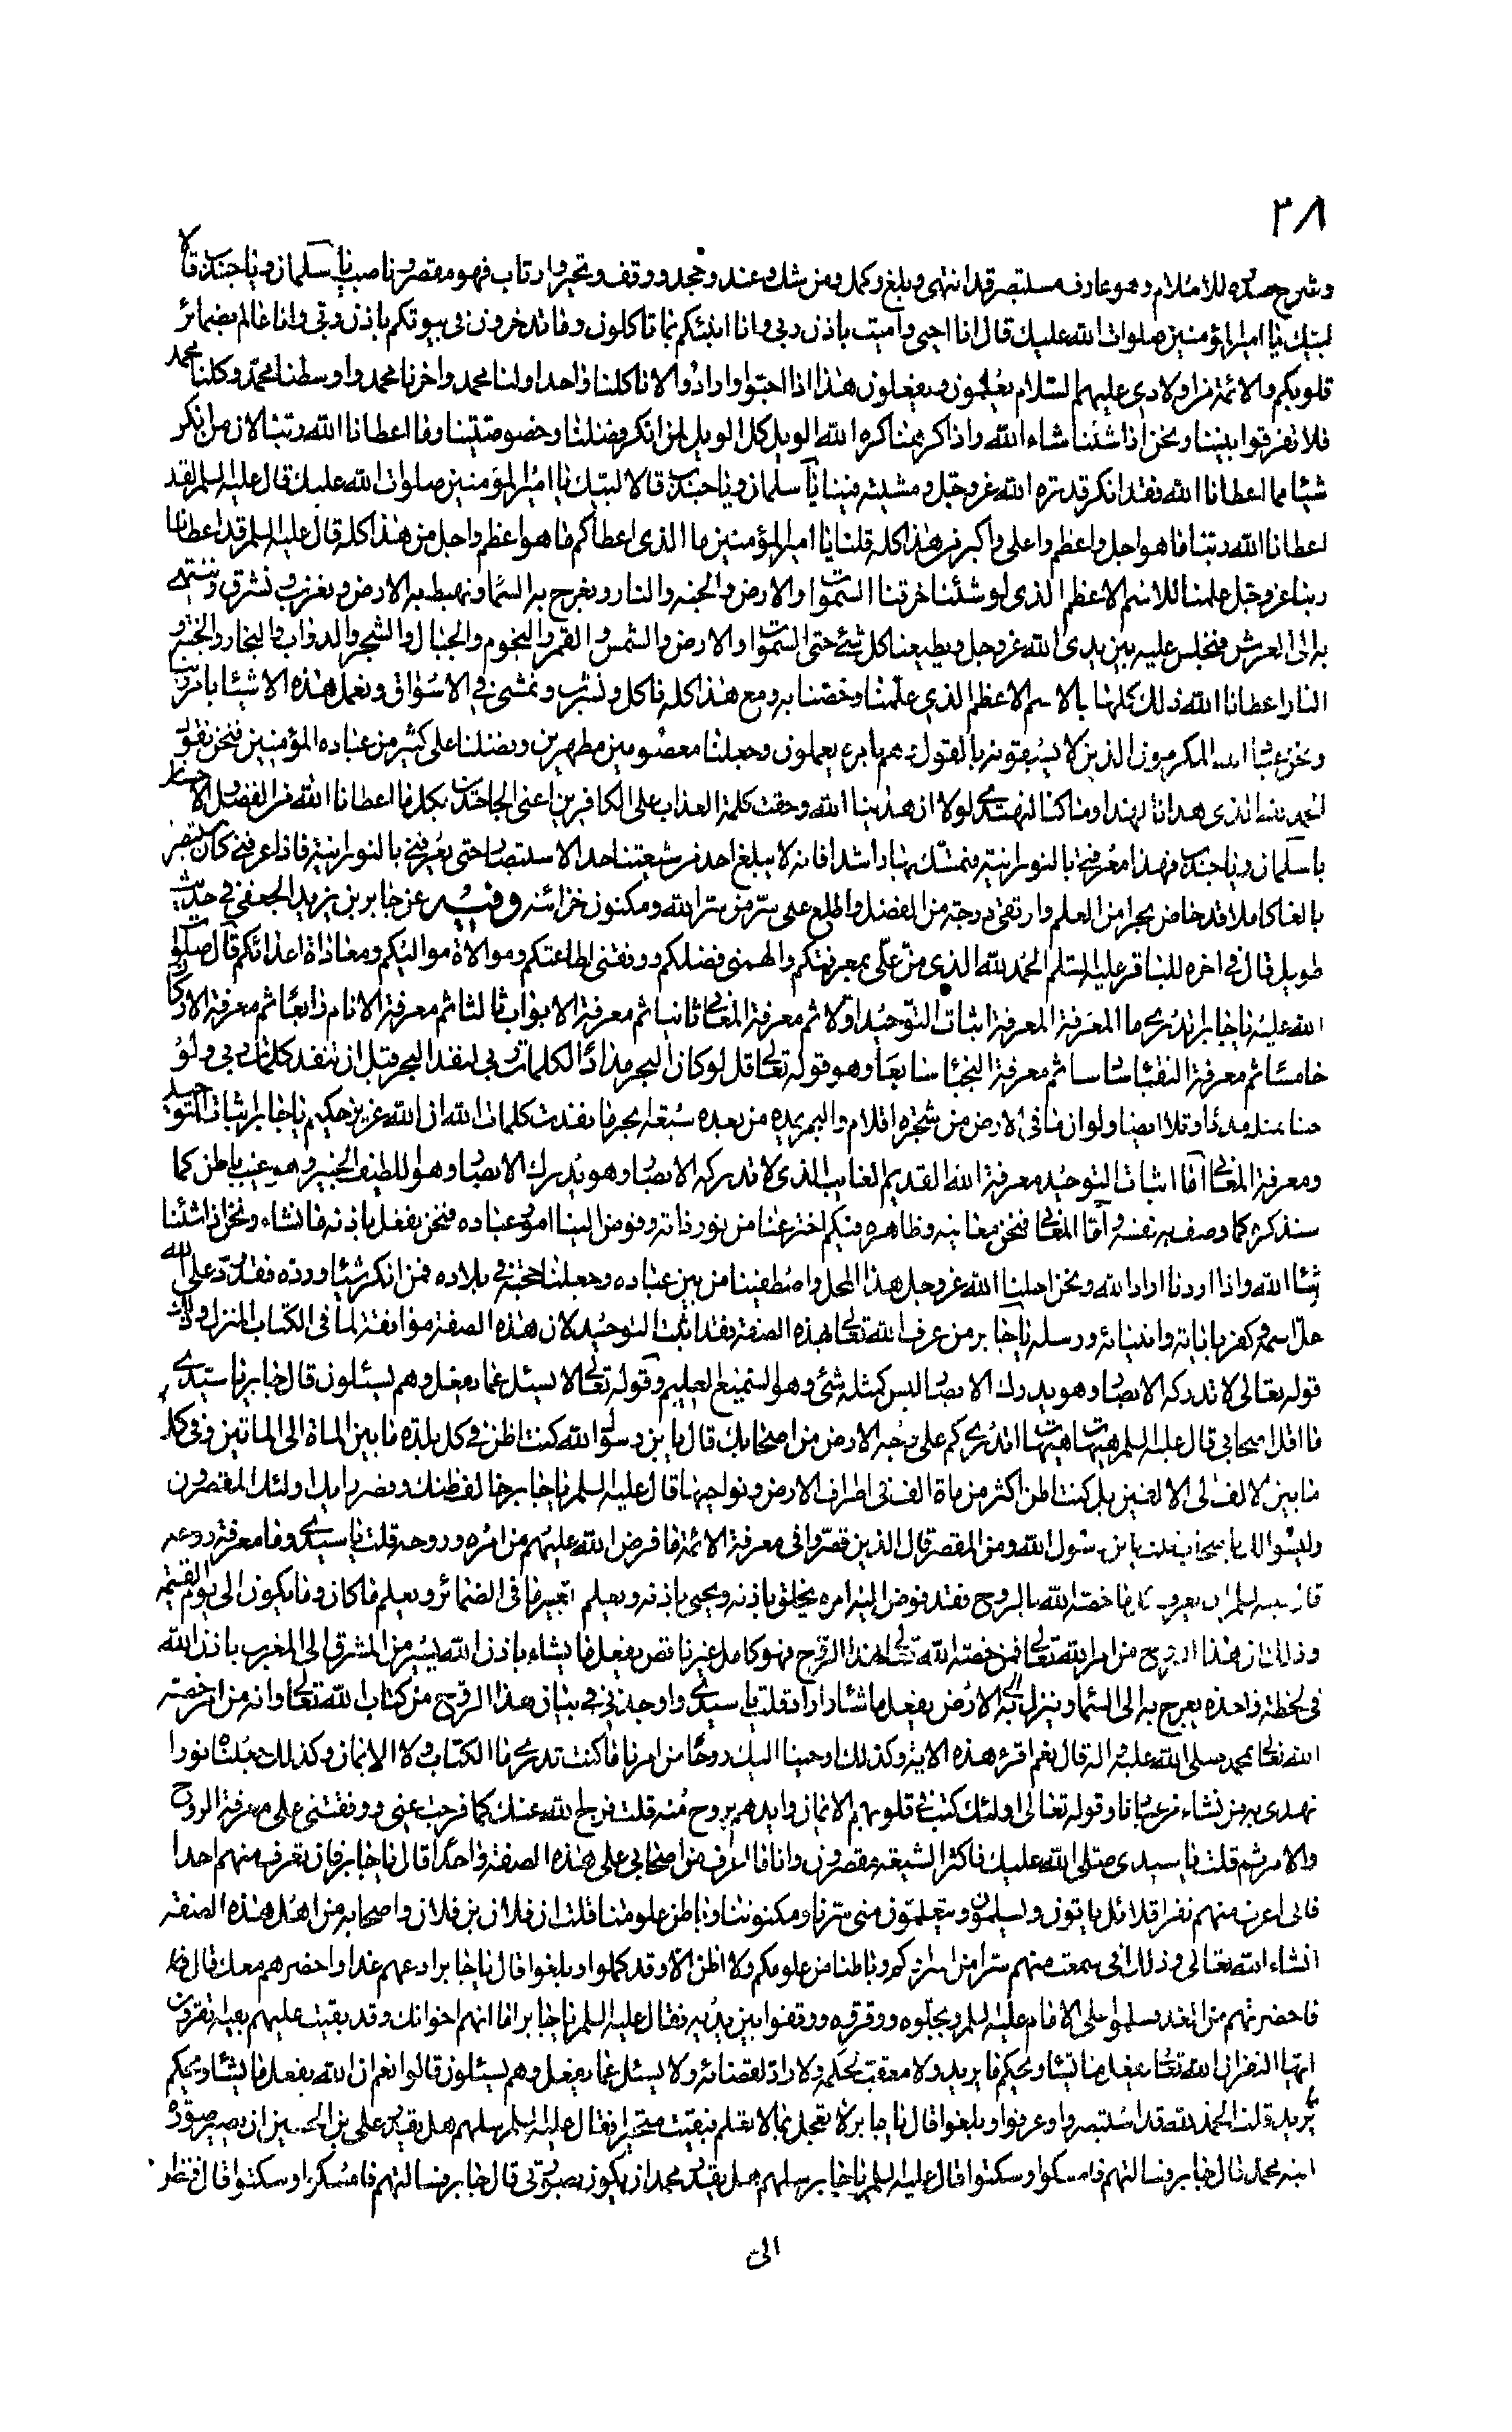 ٣٨
وشرح صدره للاسلام وهو عارف مستبصر قد انتهى وبلغ وكمل ومن شك وعند وجحد ووقف وتحير وارتاب فهو مقصر وناصب يا سلمان ويا جندب قالا
لبيك يا امير المؤمنين صلوات الله عليك قال انا احيى واميت باذن ربى وانا انبئكم بما تاكلون وما تدخرون فى بيوتكم باذن ربى وانا عالم بضمائر
قلوبكم والائمة من اولادى عليهم السلام يعلمون ويفعلون هذا اذا احبوا وارادوا لانا كلنا واحد اولنا محمد واخرنا محمد واوسطنا محمد وكلنا محمد
فلا تفرقوا بيننا ونحن اذا شئنا شاء الله واذا كرهنا كره الله الويل كل الويل لمن انكر فضلنا وخصوصيتنا وما اعطانا الله ربنا لان من انكر
شيئا مما اعطانا الله فقد انكر قدرة الله عز وجل ومشيته فينا يا سلمان ويا جندب قالا لبيك يا امير المؤمنين صلوات الله عليك قال عليه السلم لقد
اعطانا الله ربنا ما هو اجل واعظم واعلى واكبر من هذا كله قلنا يا امير المؤمنين ما الذى اعطاكم ما هو اعظم واجل من هذا كله قال عليه السلم قد اعطانا
ربنا عز وجل علمنا للاسم الاعظم الذى لو شئنا خرقنا السموات والارض والجنه والنار ونعرج به السماء ونهبط به الارض ونغرب ونشرق وننتهى
به الى العرش فنجلس عليه بين يدى الله عز وجل ويطيعنا كل شئ حتى السموات والارض والشمس والقمر والنجوم والجبال والشجر والدواب والبحار والجنة و
النار اعطانا الله ذلك كله بالاسم الاعظم الذى علمنا وخصنا به ومع هذا كله ناكل ونشرب ونمشى فى الاسواق ونعمل هذه الاشياء بامر ربنا
ونحن عباد الله المكرمون الذين لا يسبقونه بالقول وهم بامره يعملون وجعلنا معصومين مطهرين وفضلنا على كثير من عباده المؤمنين فنحن نقول
الحمد لله الذى هدانا لهذا وما كنا لنهتدى لولا ان هدينا الله وحقت كلمة العذاب على الكافرين اعنى الجاحدين بكل ما اعطانا الله من الفضل والاحسان
يا سلمان ويا جندب فهذا معرفتى بالنورانية فتمسك بها راشدا فانه لا يبلغ احد من شيعتنا حد الاستبصار حتى يعرفنى بالنورانية فاذا عرفنى كان مستبصر
بالغا كاملا قد خاض بحرا من العلم وارتقى درجة من الفضل واطلع على سر من سر الله ومكنون خزائنه وفيه عن جابر بن يزيد الجعفى فى حديث
طويل قال فى اخره للباقر عليه السلم الحمد لله الذى من على بمعرفتكم والهمنى فضلكم ووفقنى لطاعتكم وموالاة مواليكم ومعاداة اعدائكم قال صلوات
الله عليه يا جابر تدرى ما المعرفة المعرفة اثبات التوحيد اولا ثم معرفة المعانى ثانيا ثم معرفة الابواب ثالثا ثم معرفة الامام رابعا ثم معرفة الاركان
خامسا ثم معرفة النقباء سادسا ثم معرفة النجباء سابعا وهو قوله تعالى قل لو كان البحر مدادا لكلمات ربى لنفد البحر قبل ان تنفد كلمات ربى ولو
جئنا بمثله مددا وتلا ايضا ولو ان ما فى الارض من شجرة اقلام والبحر يمده من بعده سبعة ابحر ما نفدت كلمات الله ان الله عزيز حكيم يا جابر اثبات التوحيد
ومعرفة المعانى اما اثبات التوحيد معرفة الله القديم الغايب الذى لا تدركه الابصار وهو يدرك الابصار وهو اللطيف الخبير وهو غيب باطن كما
سنذكره كما وصف به نفسه واما المعانى فنحن معانيه وظاهره فيكم اخترعنا من نور ذاته وفوض الينا امور عباده فنحن نفعل باذنه ما نشاء ونحن اذا شئنا
شاء الله واذا اردنا اراد الله ونحن احلنا الله عز وجل هذا المحل واصطفينا من بين عباده وجعلنا حجته فى بلاده فمن انكر شيئا ورده فقد رد على الله
جل اسمه وكفر باياته وانبيائه ورسله يا جابر من عرف الله تعالى بهذه الصفة فقد اثبت التوحيد لان هذه الصفة موافقة لما فى الكتاب المنزل وذلك
قوله تعالى لا تدركه الابصار وهو يدرك الابصار ليس كمثله شئ وهو السميع العليم وقوله تعالى لا يسئل عما يفعل وهم يسئلون قال جابر يا سيدى
ما اقل اصحابى قال عليه السلم هيهات هيهات اتدرى كم على وجه الارض من اصحابك قال يا بن رسول الله كنت اظن فى كل بلدة ما بين الماة الى الماتين وفى كل
ما بين الالف الى الالفين بل كنت اظن اكثر من ماة الف فى اطراف الارض ونواحيها قال عليه السلم يا جابر خالف ظنك وقصر رايك اولئك المقصرون
وليسوا لك باصحاب قلت يا بن رسول الله ومن المقصر قال الذين قصروا فى معرفة الائمة ما فرض الله عليهم من امره وروحه قلت يا سيدى وما معرفة روحه
قال عليه السلم ان يعرف كل من خصه الله بالروح فقد فوض اليه امره يخلق باذنه ويحيى باذنه ويعلم الغير ما فى الضمائر ويعلم ما كان وما يكون الى يوم القيمة
وذلك ان هذا الروح من امر الله تعالى فمن خصه الله تعالى بهذا الروح فهو كامل غير ناقص يفعل ما يشاء باذن الله يسير من المشرق الى المغرب باذن الله
فى لحظة واحده يعرج به الى السماء وينزل به الى الارض يفعل ما شاء واراد قلت يا سيدى واوجدنى فى بيان هذا الروح من كتاب الله تعالى وانه من امر خصه
الله تعالى بمحمد صلى الله عليه واله قال نعم اقرء هذه الاية وكذلك اوحينا اليك روحا من امرنا ما كنت تدرى ما الكتاب ولا الايمان وكذلك جعلناه نورا
نهدى به من نشاء من عبادنا وقوله تعالى اولئك كتب فى قلوبهم الايمان وايدهم بروح منه قلت فرج الله عنك كما فرجت عنى ووفقتنى على معرفة الروح
والامر ثم قلت يا سيدى صلى الله عليك فاكثر الشيعة مقصرون وانا ما اعرف من اصحابى على هذه الصفة واحدا قال يا جابر فان لم تعرف منهم احدا
فانى اعرف منهم نفرا قلائل ياتون ويسلمون ويتعلمون منى سرنا ومكنوننا وباطن علومنا قلت ان فلان بن فلان واصحابه من اهل هذه الصفة
انشاء الله تعالى وذلك انى سمعت منهم سرا من اسراركم وباطنا من علومكم ولا اظن الا وقد كملوا وبلغوا قال يا جابر ادعهم غدا واحضرهم معك قال
فاحضرتهم من الغد فسلموا على الامام عليه السلم وبجلوه ووقروه ووقفوا بين يديه فقال عليه السلم يا جابر اما انهم اخوانك وقد بقيت عليهم بقية اتقرون
ايها النفر ان الله تعالى يفعل ما يشاء ويحكم ما يريد ولا معقب لحكمه ولا راد لقضائه ولا يسئل عما يفعل وهم يسئلون قالوا نعم ان الله يفعل ما يشاء ويحكم
ما يريد قلت الحمد لله قد استبصروا وعرفوا وبلغوا قال يا جابر لا تعجل بما لا تعلم فبقيت متحيرا فقال عليه السلم سلهم هل يقدر على بن الحسين ان يصير صورة
ابنه محمد قال جابر فسالتهم فامسكوا وسكتوا قال عليه السلم يا جابر سلهم هل يقدر محمد ان يكون بصورتى قال جابر فسالتهم فامسكوا وسكتوا قال فنظر
الى